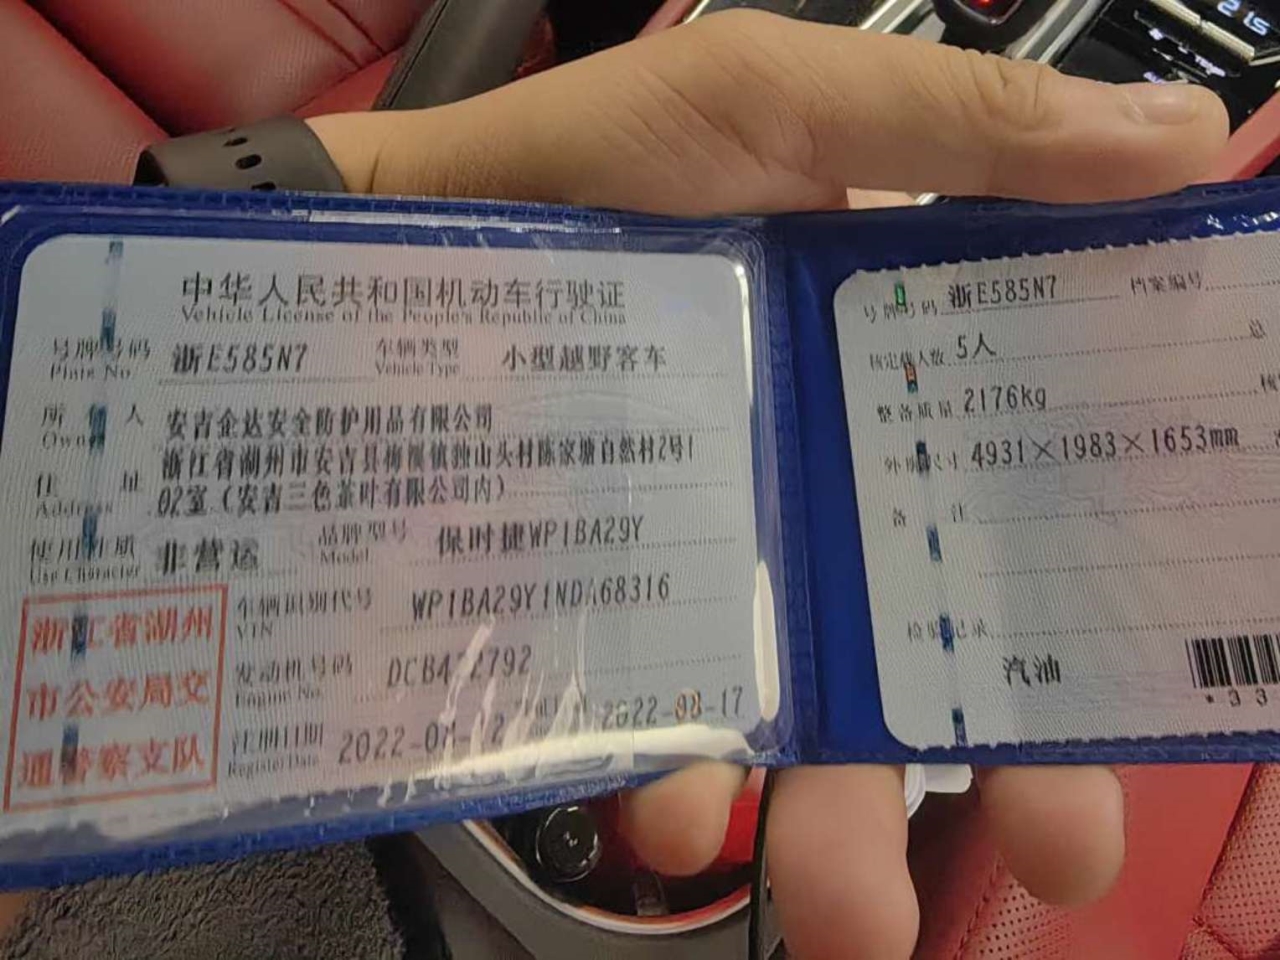 中华人民共和国机动车行驶证
Vehicle License of the People's Republic of China
号牌号码 浙E585N7 车辆类型 小型越野客车
Plate No. Vehicle Type
所有人 安吉金达安全防护用品有限公司
Owner
住址 浙江省湖州市安吉县梅溪镇独山头村陈家塘自然村2号1
Address 02室(安吉三色茶叶有限公司内)
使用性质 非营运 品牌型号 保时捷WP1BA29Y
Use Character Model
车辆识别代号 WP1BA29Y1NDA68316
VIN
发动机号码
Engine No.
注册日期
Register Date
浙江省湖州
市公安局交
通警察支队
号牌号码 浙E585N7 档案编号
核定载人数 5人 总
整备质量 2176kg
外廓尺寸 4931×1983×1653mm
备注
检验记录
汽油
*33
215